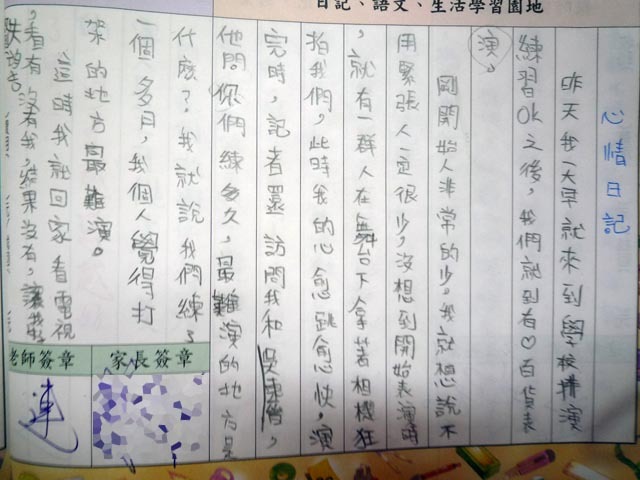 日記、語文、生活學習園地
心情日記
昨天我一大早就來到學校排演
練習OK之後,我們就到有♡百貨表
演。
剛開始人非常的少。我就想說不
用緊張人一定很少,沒想到開始表演時
,就有一群人在舞台下拿著相機狂
拍我們,此時我的心愈跳愈快,演
完時,記者還訪問我和
他問你們練多久,最難演的地方是
什麼?我就說我們練了
一個多月,我個人覺得打
架的地方最難演。
這時我就回家看電視
,看有沒有我,結果沒有,讓我
家長簽章
老師簽章
連